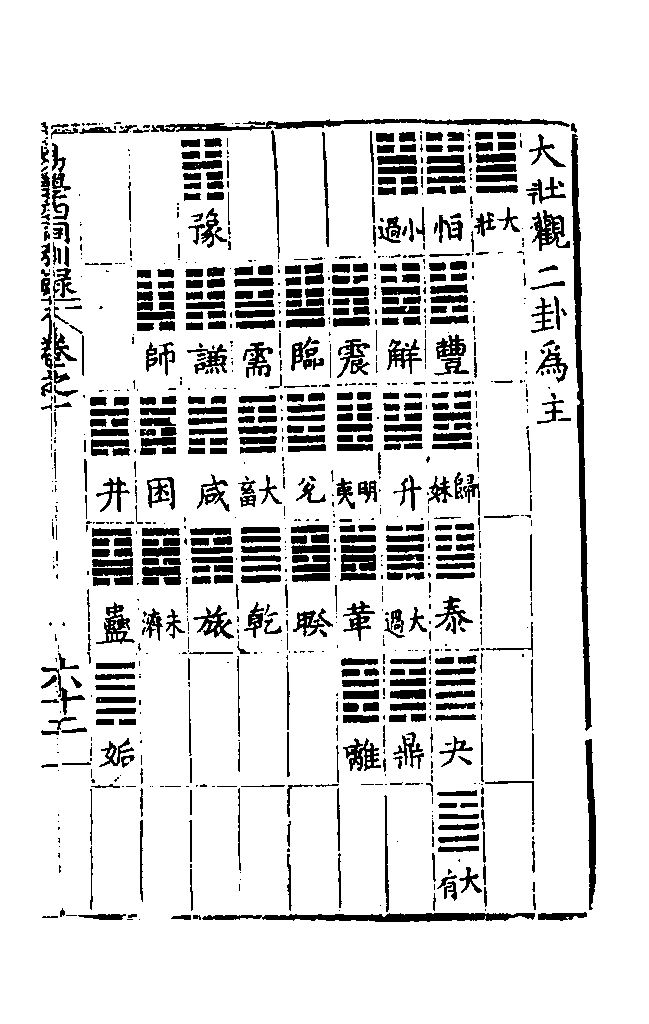 大壯觀二卦爲主
大壯 恒 小過 豫
豐 解 震 臨 需 謙 師
歸妹 升 明夷 兌 大畜 咸 困 井
泰 大過 革 睽 乾 旅 未濟 蠱
夬 鼎 離 姤
大有
易學四同別錄 卷之一
六十二